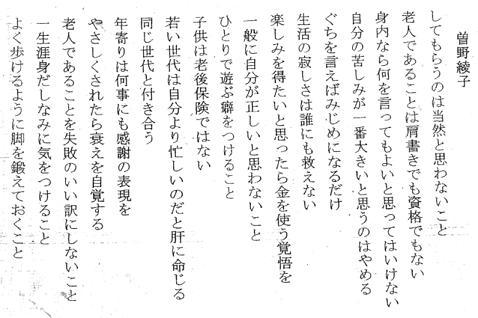 曽野綾子
してもらうのは当然と思わないこと
老人であることは肩書きでも資格でもない
身内なら何を言ってもよいと思ってはいけない
自分の苦しみが一番大きいと思うのはやめる
ぐちを言えばみじめになるだけ
生活の寂しさは誰にも救えない
楽しみを得たいと思ったら金を使う覚悟を
一般に自分が正しいと思わないこと
ひとりで遊ぶ癖をつけること
子供は老後保険ではない
若い世代は自分より忙しいのだと肝に命じる
同じ世代と付き合う
年寄りは何事にも感謝の表現を
やさしくされたら衰えを自覚する
老人であることを失敗のいい訳にしないこと
一生涯身だしなみに気をつけること
よく歩けるように脚を鍛えておくこと